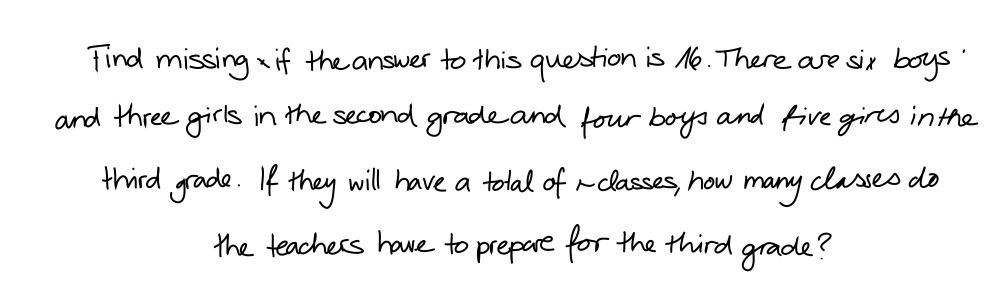 Find missing x if the answer to this question is 16. There are six boys
and three girls in the second grade and four boys and five girls in the
third grade. If they will have a total of ~ classes, how many classes do
the teachers have to prepare for the third grade?